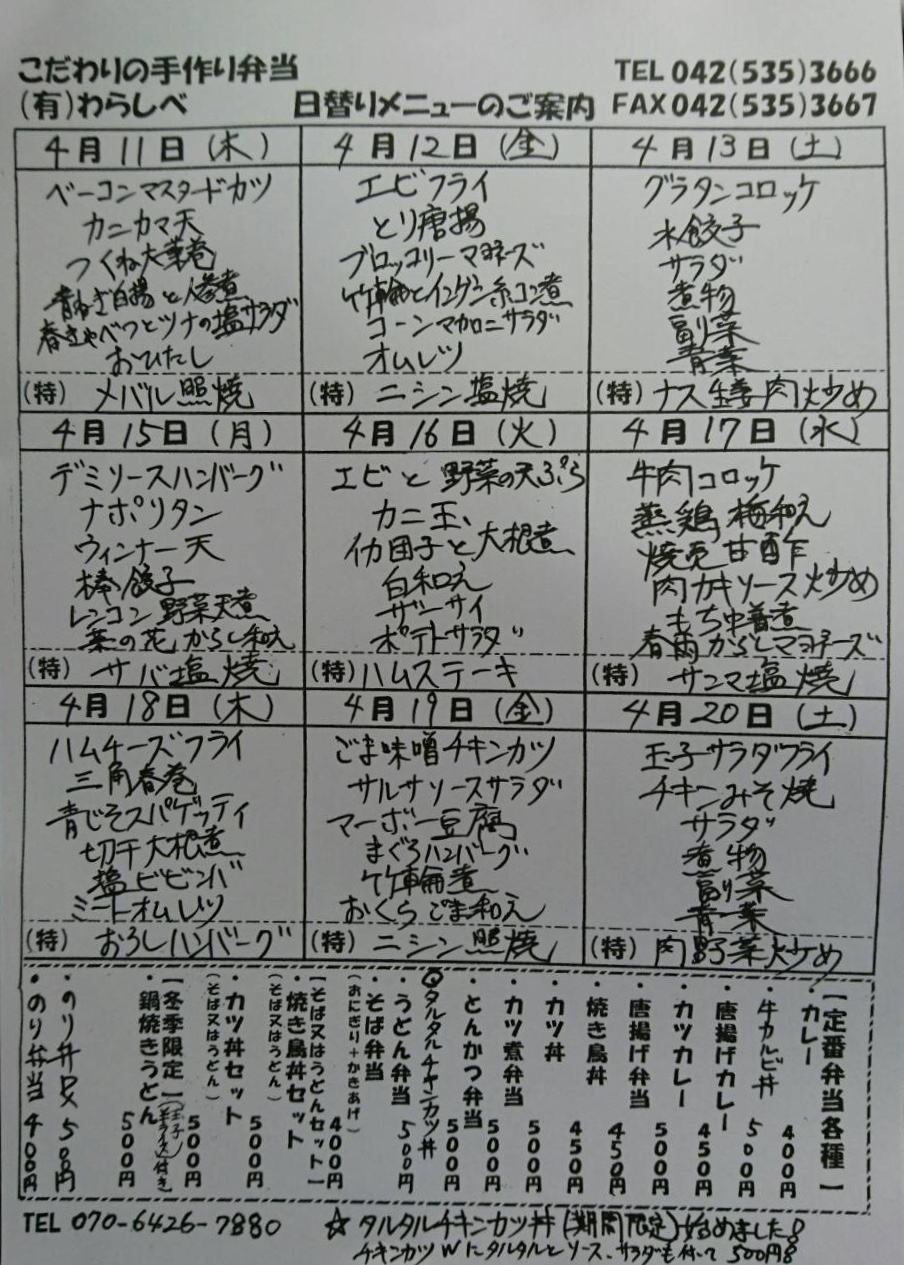 こだわりの手作り弁当
(有)わらしべ
日替りメニューのご案内
TEL 042(535)3666
FAX 042(535)3667
4月11日(木)
ベーコンマスタードカツ
カニカマ天
つくね大葉巻
青ねぎ白揚と人参煮
春きゃべつとツナの塩サラダ
おひたし
(特)メバル照焼
4月12日(金)
エビフライ
とり唐揚
ブロッコリーマヨネーズ
竹輪とインゲン糸コン煮
コーンマカロニサラダ
オムレツ
(特)ニシン塩焼
4月13日(土)
グラタンコロッケ
水餃子
サラダ
煮物
副菜
青菜
(特)ナス生姜肉炒め
4月15日(月)
デミソースハンバーグ
ナポリタン
ウィンナー天
棒餃子
レンコン野菜天煮
菜の花からし和え
(特)サバ塩焼
4月16日(火)
エビと野菜の天ぷら
カニ玉
イカ団子と大根煮
白和え
ザーサイ
ポテトサラダ
(特)ハムステーキ
4月17日(水)
牛肉コロッケ
蒸鶏梅和え
焼売甘酢
肉カキソース炒め
もち巾着煮
春雨からしマヨネーズ
(特)サンマ塩焼
4月18日(木)
ハムチーズフライ
三角春巻
青じそスパゲッティ
切干大根煮
塩ビビンバ
ミートオムレツ
(特)おろしハンバーグ
4月19日(金)
ごま味噌チキンカツ
サルサソースサラダ
マーボー豆腐
まぐろハンバーグ
竹輪煮
おくらごま和え
(特)ニシン照焼
4月20日(土)
玉子サラダフライ
チキンみそ焼
サラダ
煮物
副菜
青菜
(特)肉野菜炒め
【定番弁当各種】
・カレー 400円
・牛カルビ丼 500円
・唐揚げカレー 450円
・カツカレー 500円
・唐揚げ弁当 450円
・焼き鳥丼 450円
・カツ丼 450円
・カツ煮弁当 500円
・とんかつ弁当 500円
◎タルタルチキンカツ丼 500円
・うどん弁当 500円
・そば弁当
(おにぎり+かきあげ) 400円
【そば又はうどんセット】
・焼き鳥丼セット 500円
(そば又はうどん)
・カツ丼セット 500円
(そば又はうどん)
【冬季限定】(玉子)(半ライス)付き
・鍋焼きうどん 500円
・のり弁DX 500円
・のり弁当 400円
TEL 070-6426-7880
☆タルタルチキンカツ丼(期間限定)始めました!
チキンカツWにタルタルとソース、サラダも付いて500円!